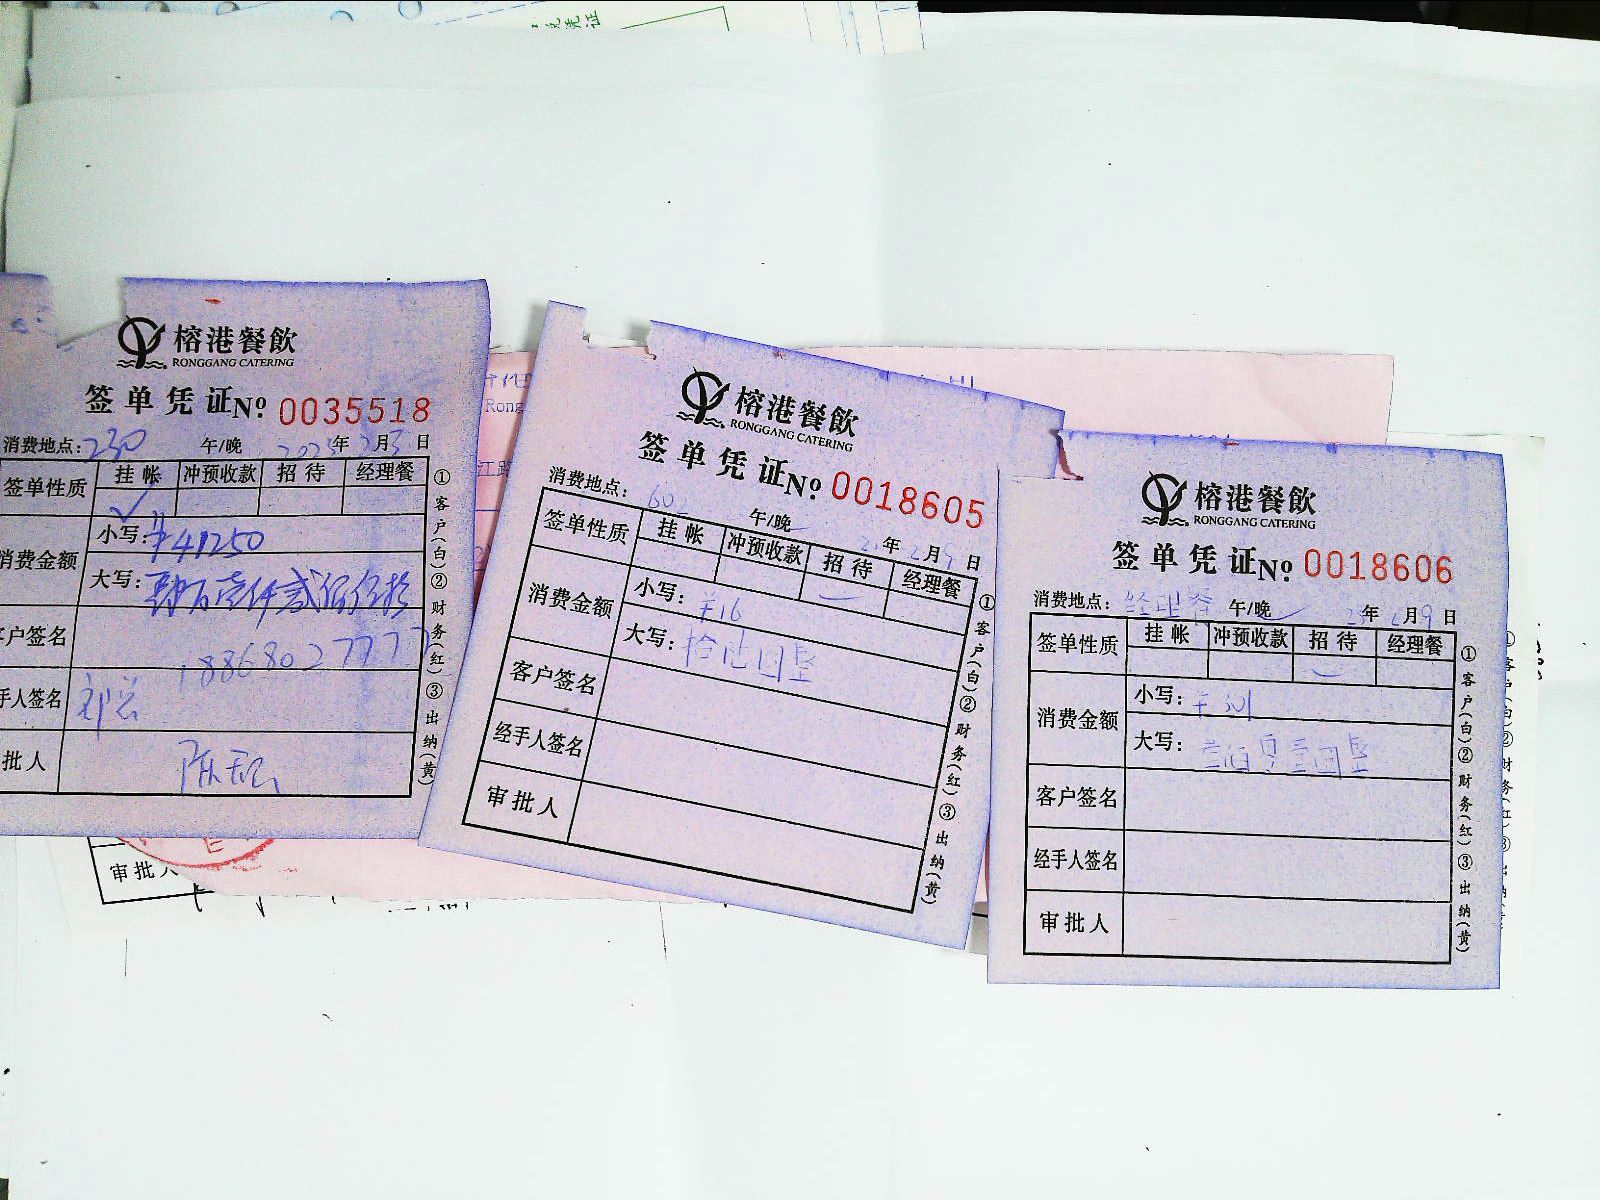 兑凭证
榕港餐飲
RONGGANG CATERING
签单凭证 Nº 0035518
消费地点：230 午/晚 2023年3月3日
签单性质 挂帐 冲预收款 招待 经理餐
✓
消费金额 小写：¥41250
大写：肆万壹仟贰佰伍拾
客户签名 18868027777
手人签名
批人
①客户（白）②财务（红）③出纳（黄）
审批人
Rong
榕港餐飲
RONGGANG CATERING
签单凭证 Nº 0018605
消费地点：602 午/晚 23年2月9日
签单性质 挂帐 冲预收款 招待 经理餐
消费金额 小写：¥16
大写：拾陆圆整
客户签名
经手人签名
审批人
①客户（白）②财务（红）③出纳（黄）
榕港餐飲
RONGGANG CATERING
签单凭证 Nº 0018606
消费地点：经理餐 午/晚 23年2月9日
签单性质 挂帐 冲预收款 招待 经理餐
消费金额 小写：¥301
大写：叁佰零壹圆整
客户签名
经手人签名
审批人
①客户（白）②财务（红）③出纳（黄）